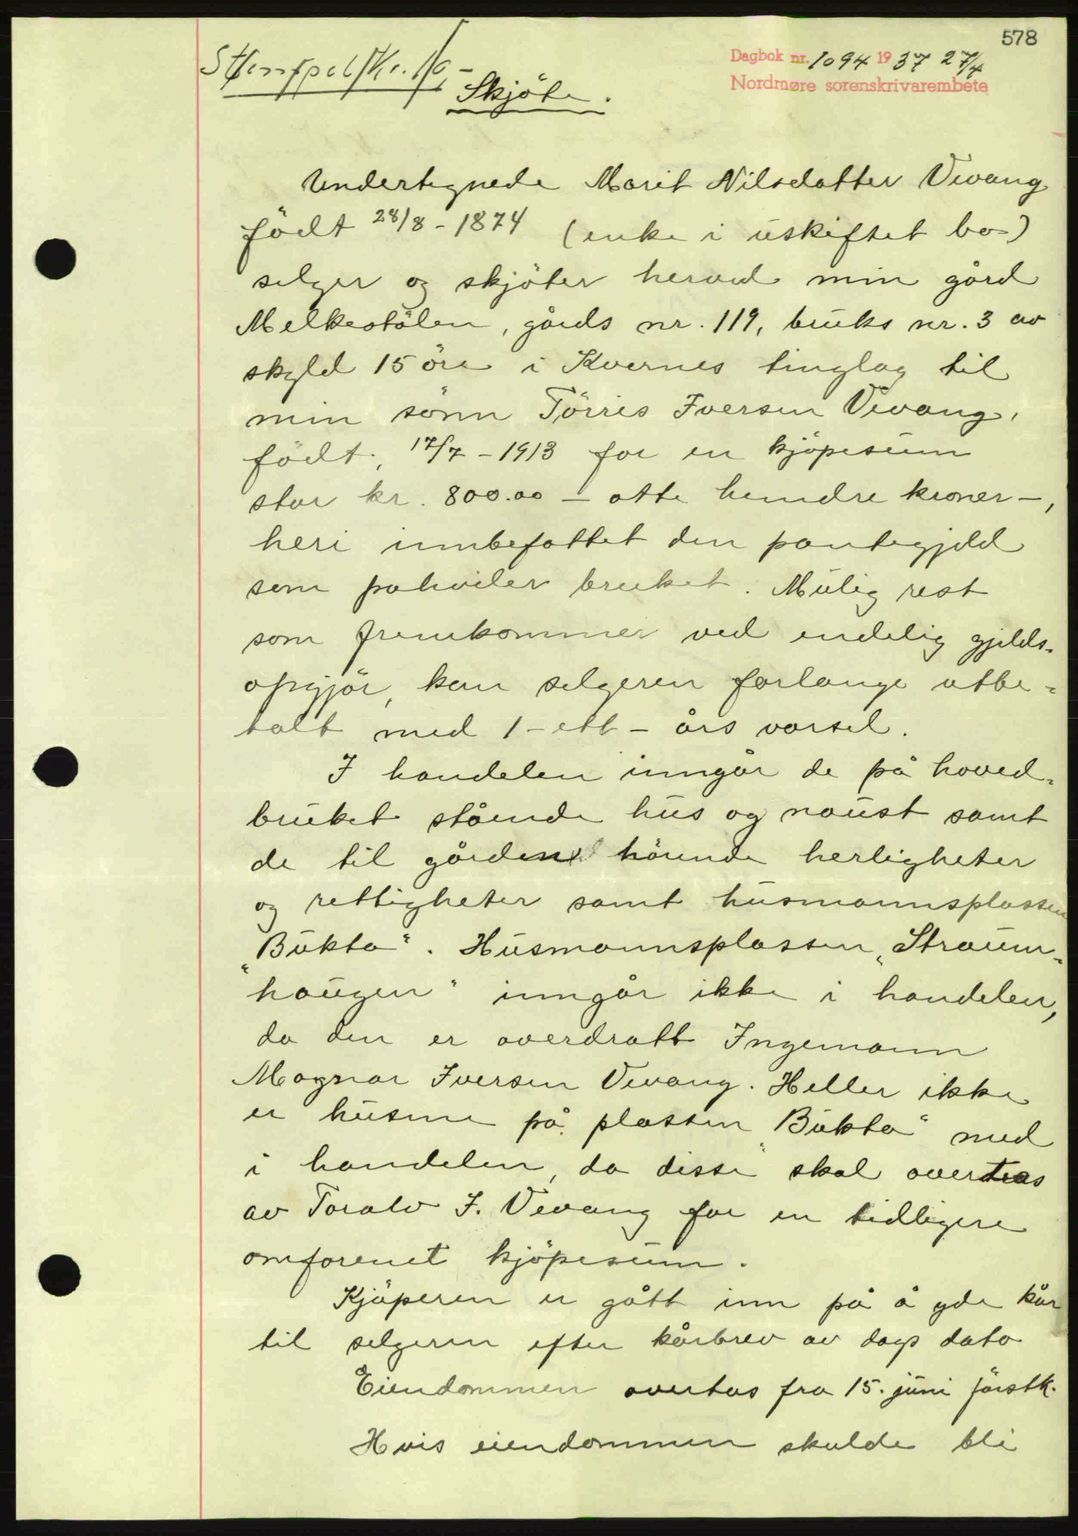 578
Stempel Kr. 10 -
Dagbok nr. 1094 1937 27/4
Nordmøre sorenskrivarembete
Skjöte.
Undertegnede Marit Nilsdatter Vevang
födt 28/8 - 1874 (enke i uskiftet bo)
selger og skjöter herved min gård
Melkestölen, gårds nr. 119, bruks nr. 3 av
skyld 15 öre i Kvernes tinglag til
min sönn Törris Iversen Vevang,
födt, 17/7 - 1913 for en kjöpesum
stor kr. 800.00 - otte hundre kroner -,
heri innbefattet den pantegjeld
som påhviler bruket. Mulig rest
som fremkommer ved endelig gjelds-
opgjör, kan selgeren forlange utbe-
talt med 1 - ett - års varsel.
I handelen inngår de på hoved-
bruket stående hus og naust samt
de til gården hörende herligheter
og rettigheter samt husmannsplassen
"Bukta". Husmannsplassen "Straum-
haugen" inngår ikke i handelen,
da den er overdratt Ingemann
Magnar Iversen Vevang. Heller ikke
er husene på plassen "Bukta" med
i handelen, da disse skal overtas
av Toralv I. Vevang for en tidligere
omforenet kjöpesum.
Kjöperen er gått inn på å yde kår
til selgeren efter kårbrev av dags dato
Eiendommen overtas fra 15. juni förstk.
Hvis eiendommen skulde bli